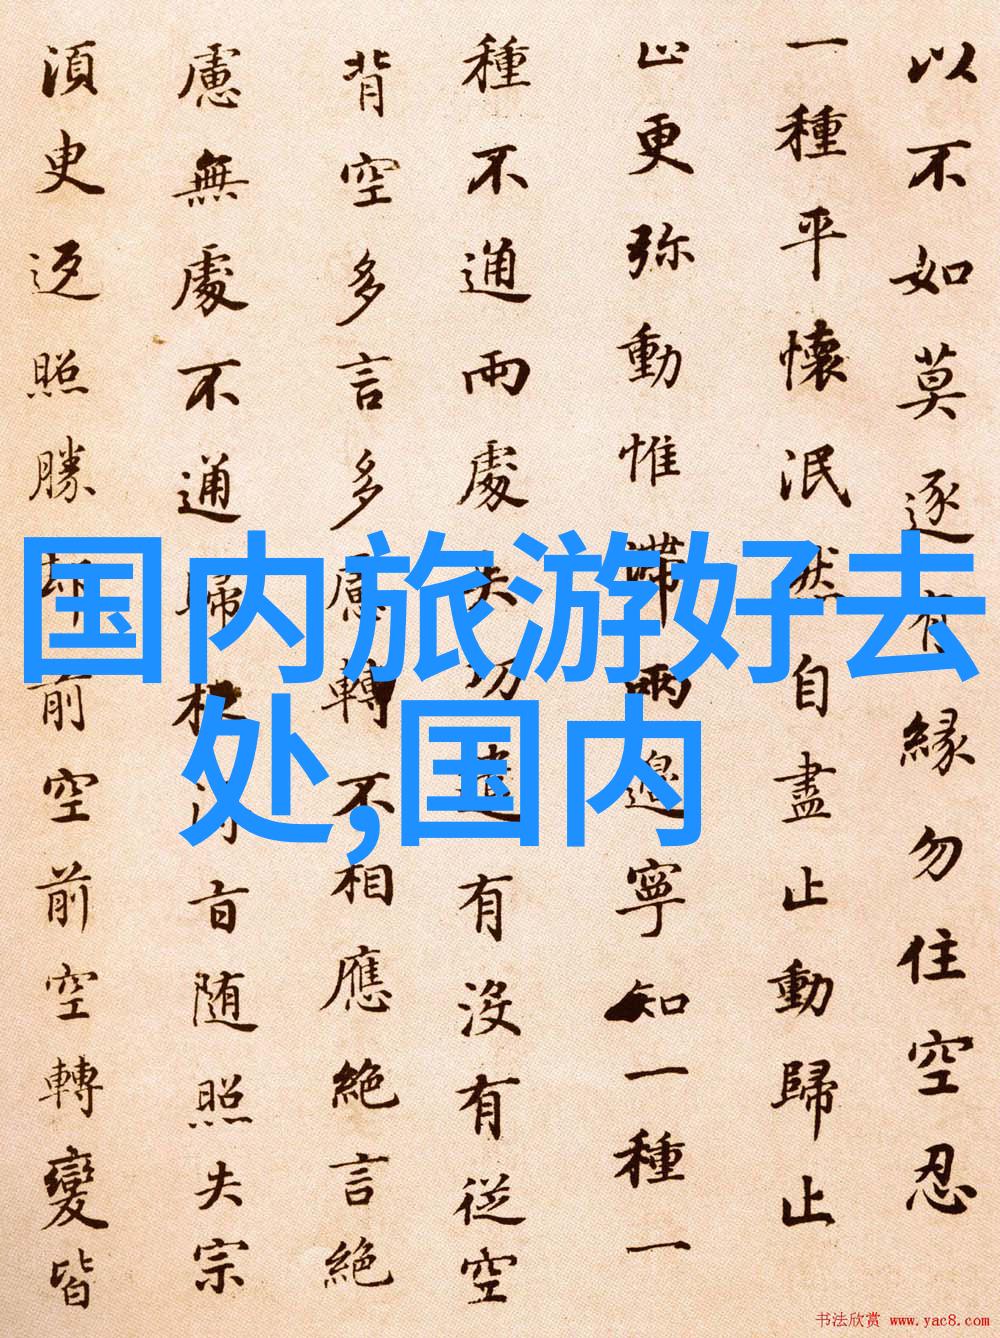 以不如莫逐有緣勿住空忍
一種平懷泯然自盡止動歸止
止更弥動惟滯兩邊寧知一種一
種不通兩處失功遣有沒有従空
背空多言多慮轉不相應絶言絶
慮無處不通歸根得旨随照失宗
須臾返照勝却前空前空轉變皆
国内旅游好去
处,国内
书法欣赏 www.yac8.com